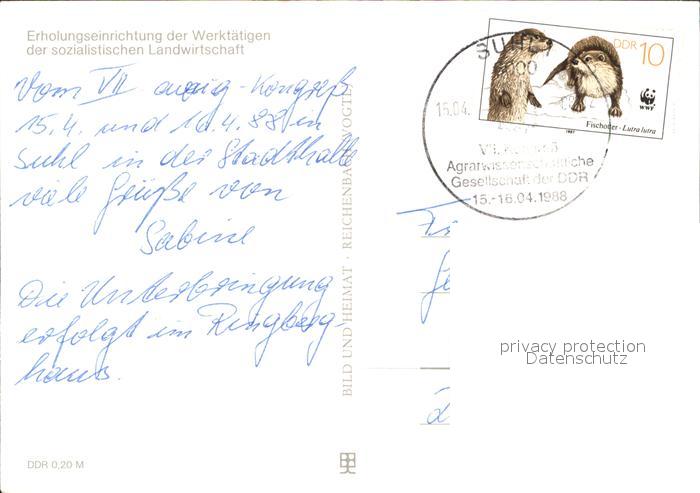 Erholungseinrichtung der Werktätigen
der sozialistischen Landwirtschaft
Vom VII. -Kongreß
15.4. und 16.4.88 in
Suhl in der Stadthalle
viele Grüße von
Sabine
Die Unterbringung
erfolgt im Ringberg-
haus.
DDR 0,20 M
BILD UND HEIMAT · REICHENBACH (VOGTL)
SUHL 1
DDR 10
WWF
Fischotter · Lutra lutra
1987
15.04.
VII. Kongreß
Agrarwissenschaftliche
Gesellschaft der DDR
15.-16.04.1988
privacy protection
Datenschutz